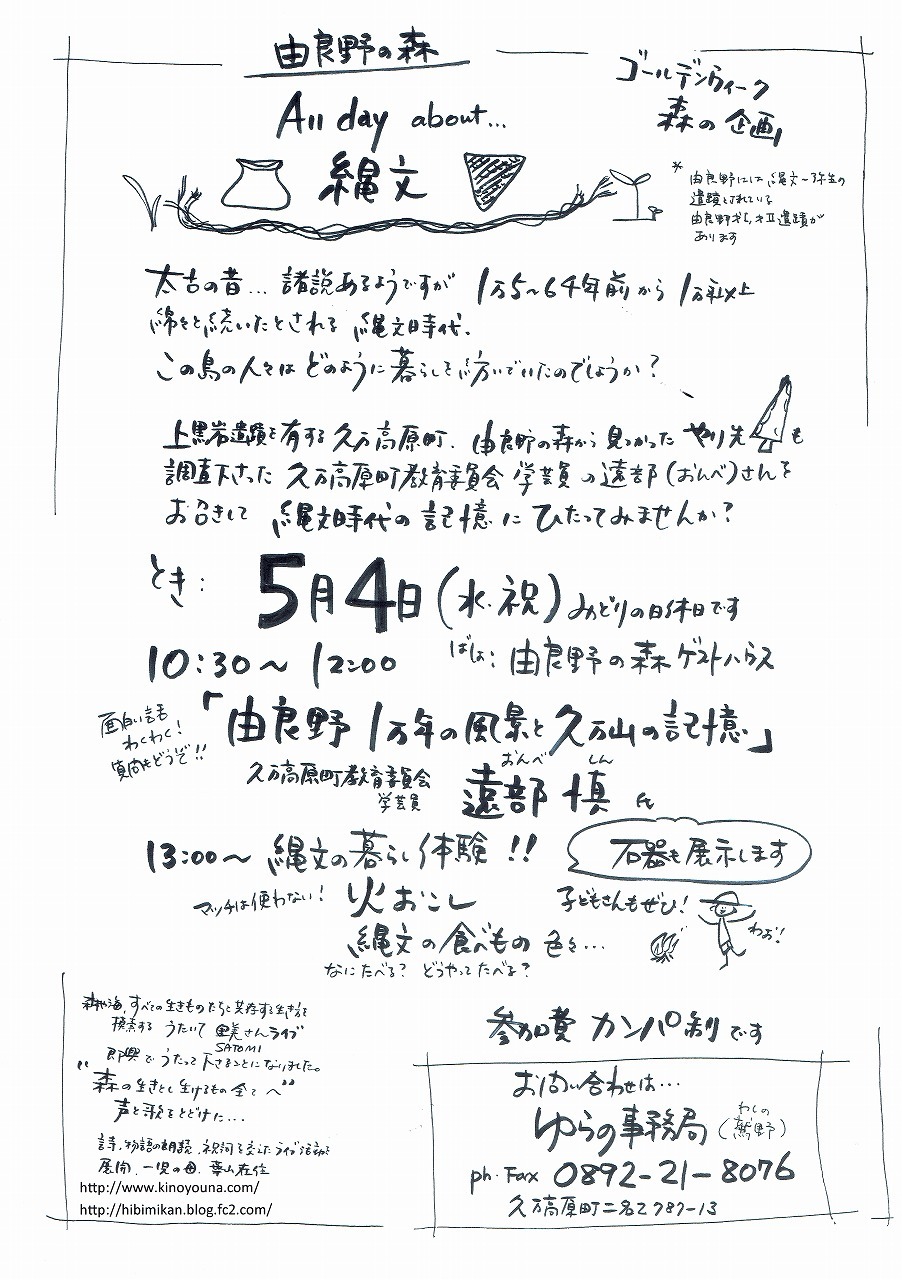 由良野の森
ゴールデンウィーク
森の企画
All day about...
縄文
* 由良野には縄文〜弥生の
遺蹟とされている
遺蹟が
あります
太古の昔... 諸説あるようですが 1万5〜6千年前から 1万年以上
綿々と続いたとされる 縄文時代、
この島の人々は どのように暮らしを紡いでいたのでしょうか?
上黒岩遺蹟を有する久万高原町、由良野の森から見つかった やり先も
調査下さった 久万高原町教育委員会 学芸員の遠部(おんべ)さんを
お招きして 縄文時代の記憶にひたってみませんか?
とき: 5月4日(水・祝)みどりの日休日です
10:30〜12:00 ばしょ: 由良野の森ゲストハウス
面白い話
わくわく!
質問もどうぞ!!
「由良野 1万年の風景と久万山の記憶」
おんべ しん
久万高原町教育委員会 遠部 慎 氏
学芸員
13:00〜 縄文の暮らし体験!!
石器も展示します
マッチは使わない! 火おこし
子どもさんもぜひ!
わお!
縄文の食べもの 色々...
なにたべる? どうやってたべる?
森や海、すべての生きものたちと共存する生き方を
模索する うたいて 里美さんライブ
SATOMI
即興でうたって下さることになりました。
"森の生きとし生けるもの全てへ"
声と歌をとどけた...
詩、物語の朗読、祝詞を交えたライブ活動を
展開、一児の母、葉山在住
http://www.kinoyouna.com/
http://hibimikan.blog.fc2.com/
参加費 カンパ制です
お問い合わせは...
ゆらの事務局(鷲野)
わしの
ph・Fax 0892-21-8076
久万高原町二名乙787-13